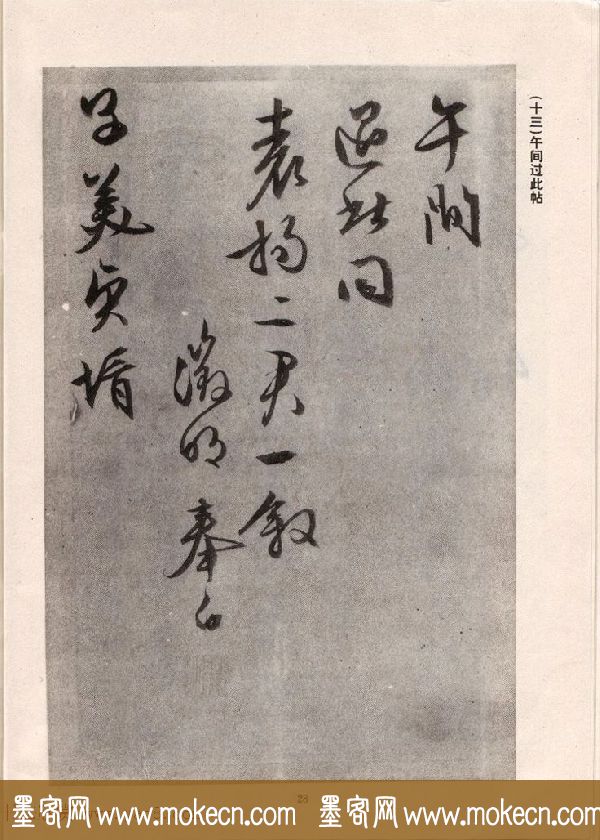 (十三)午间过此帖
午間
過此同
袁揚二君一敘
徵明奉白
子美貢壻
28
墨客网 www.mokecn.com 墨客网 www.mokecn.com